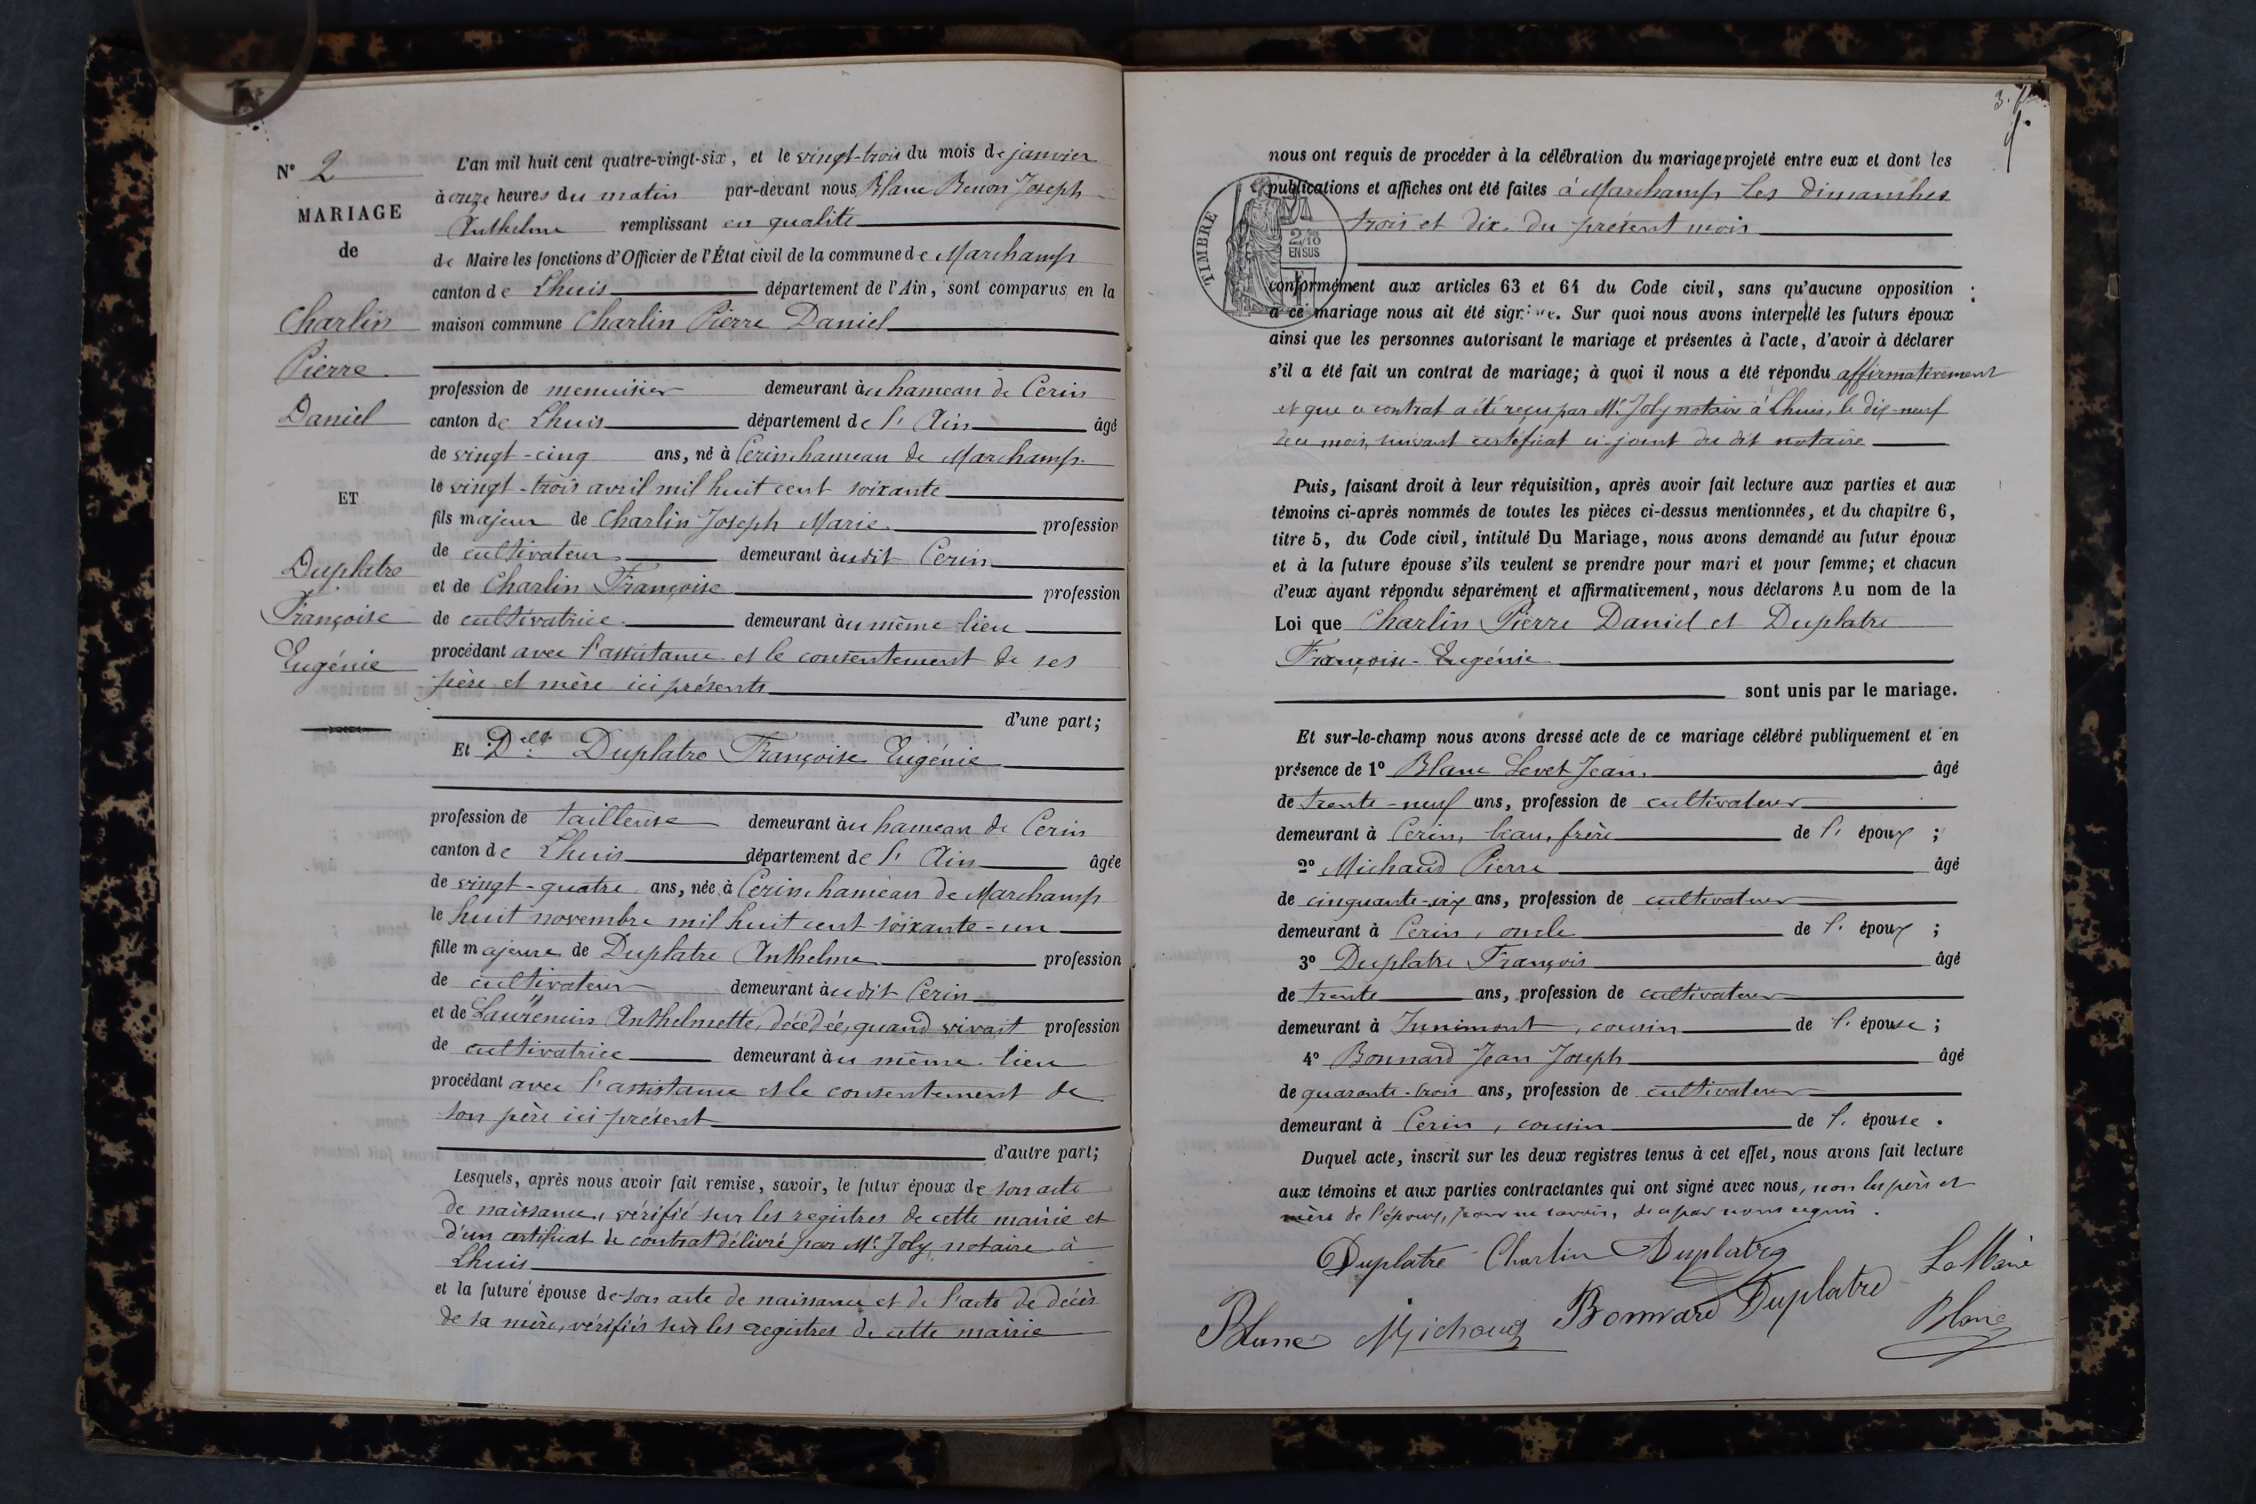 N° 2
MARIAGE
de
Charlin
Pierre
Daniel
ET
Duplatre
Françoise
Eugénie
L'an mil huit cent quatre-vingt-six, et le vingt-trois du mois de janvier
à onze heures du matin par-devant nous Blanc Benon Joseph
Anthelme remplissant en qualité
de Maire les fonctions d'Officier de l'État civil de la commune de Marchamp
canton de Lhuis département de l'Ain, sont comparus en la
maison commune Charlin Pierre Daniel
profession de menuisier demeurant au hameau de Cerin
canton de Lhuis département de l'Ain âgé
de vingt-cinq ans, né à Cerin, hameau de Marchamp
le vingt-trois avril mil huit cent soixante
fils majeur de Charlin Joseph Marie profession
de cultivateur demeurant audit Cerin
et de Charlin Françoise profession
de cultivatrice demeurant au même lieu
procédant avec l'assistance et le consentement de ses
père et mère ici présents
d'une part;
Et Dlle Duplatre Françoise Eugénie
profession de tailleuse demeurant au hameau de Cerin
canton de Lhuis département de l'Ain âgée
de vingt-quatre ans, née à Cerin, hameau de Marchamp
le huit novembre mil huit cent soixante-un
fille majeure de Duplatre Anthelme profession
de cultivateur demeurant audit Cerin
et de Laurencin Anthelmette, décédée, quand vivait profession
de cultivatrice demeurant au même lieu
procédant avec l'assistance et le consentement de
son père ici présent
d'autre part;
Lesquels, après nous avoir fait remise, savoir, le futur époux de son acte
de naissance, vérifié sur les registres de cette mairie et
d'un certificat de contrat délivré par Me Joly notaire à
Lhuis
et la future épouse de son acte de naissance et de l'acte de décès
de sa mère, vérifiés sur les registres de cette mairie
3.
nous ont requis de procéder à la célébration du mariage projeté entre eux et dont les
publications et affiches ont été faites à Marchamp les dimanches
trois et dix du présent mois
TIMBRE
2/10
EN SUS
conformément aux articles 63 et 64 du Code civil, sans qu'aucune opposition
à ce mariage nous ait été signifiée. Sur quoi nous avons interpellé les futurs époux
ainsi que les personnes autorisant le mariage et présentes à l'acte, d'avoir à déclarer
s'il a été fait un contrat de mariage; à quoi il nous a été répondu affirmativement
et que ce contrat a été reçu par Me Joly notaire à Lhuis, le dix-neuf
de ce mois, suivant certificat ci-joint du dit notaire
Puis, faisant droit à leur réquisition, après avoir fait lecture aux parties et aux
témoins ci-après nommés de toutes les pièces ci-dessus mentionnées, et du chapitre 6,
titre 5, du Code civil, intitulé Du Mariage, nous avons demandé au futur époux
et à la future épouse s'ils veulent se prendre pour mari et pour femme; et chacun
d'eux ayant répondu séparément et affirmativement, nous déclarons Au nom de la
Loi que Charlin Pierre Daniel et Duplatre
Françoise-Eugénie
sont unis par le mariage.
Et sur-le-champ nous avons dressé acte de ce mariage célébré publiquement et en
présence de 1° Blanc Levet Jean âgé
de trente-neuf ans, profession de cultivateur
demeurant à Cerin, beau, frère de l' époux ;
2° Michaud Pierre âgé
de cinquante-six ans, profession de cultivateur
demeurant à Cerin, oncle de l' époux ;
3° Duplatre François âgé
de trente ans, profession de cultivateur
demeurant à Innimont, cousin de l' épouse ;
4° Bonnard Jean Joseph âgé
de quarante-trois ans, profession de cultivateur
demeurant à Cerin, cousin de l' épouse .
Duquel acte, inscrit sur les deux registres tenus à cet effet, nous avons fait lecture
aux témoins et aux parties contractantes qui ont signé avec nous, non les père et
mère de l'époux, pour ne savoir, de ce par nous requis.
Duplatre Charlin Duplatre Le Maire
Blanc Michaud Bonnard Duplatre Blanc